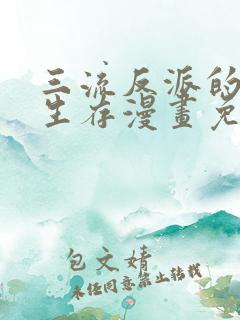 三流反派的
生存漫畫免
包文婧
未经同意禁止转载